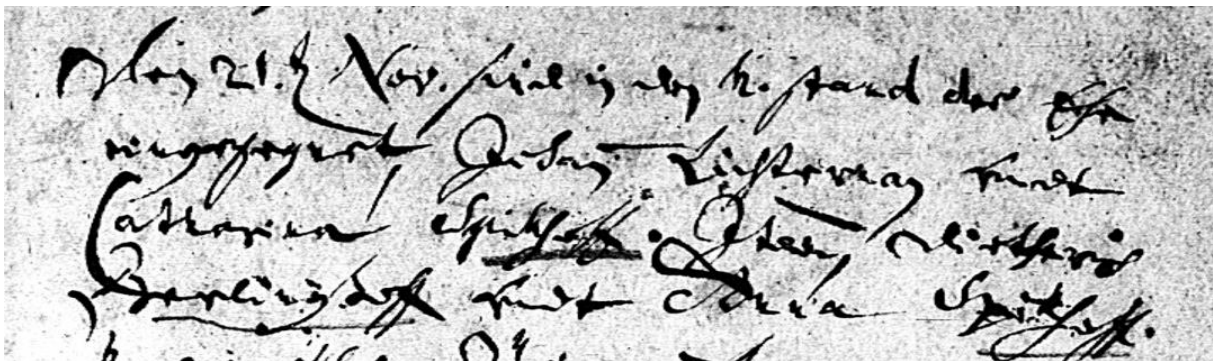 Den 21. Nov. sind in den h. stand der Ehe
eingesegnet Johan Lichterman undt
Catharina Spithoff. Item Dietherich
undt Anna Spithoff.